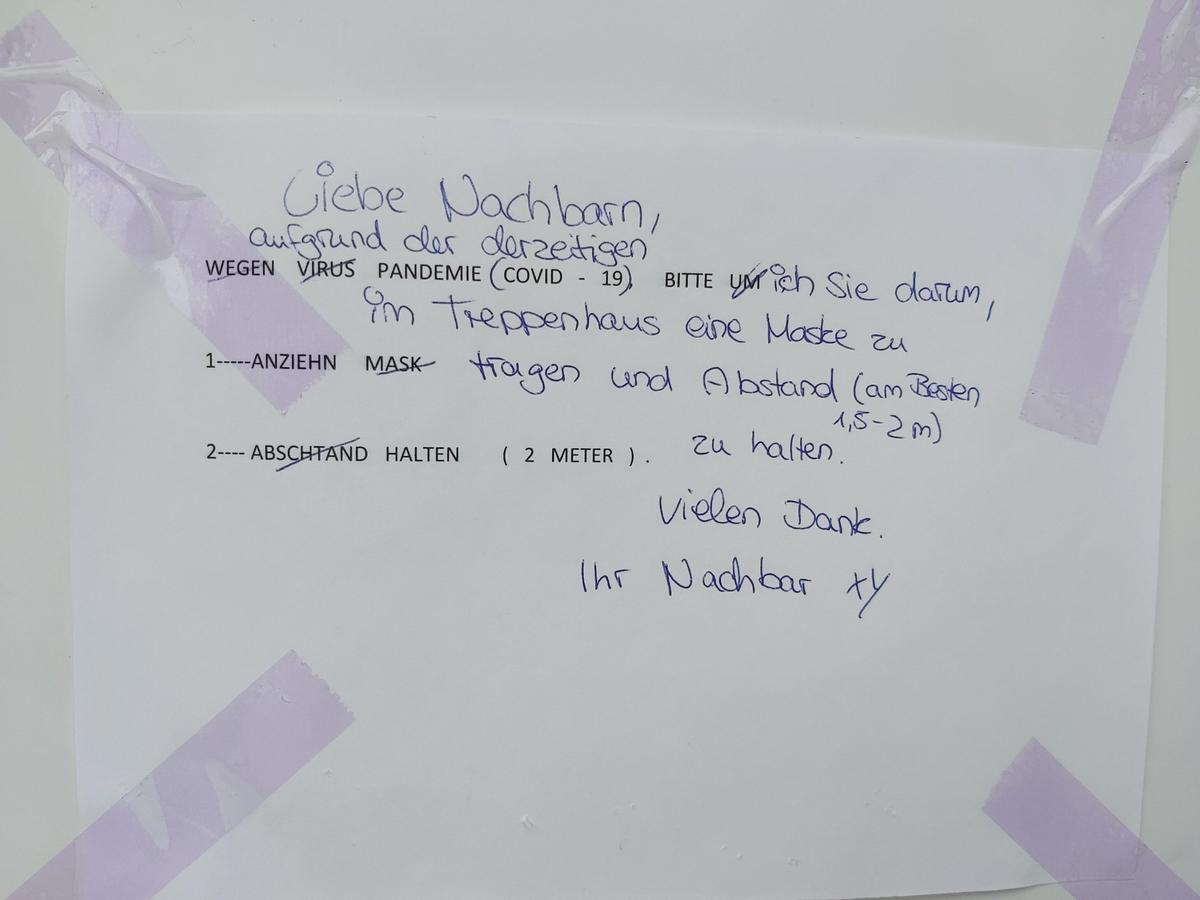 Liebe Nachbarn,
aufgrund der derzeitigen
WEGEN VIRUS PANDEMIE (COVID - 19), BITTE UM ich Sie darum,
im Treppenhaus eine Maske zu
1-----ANZIEHN MASK tragen und Abstand (am Besten
1,5-2m)
2---- ABSCHTAND HALTEN ( 2 METER ) . zu halten.
Vielen Dank.
Ihr Nachbar xy